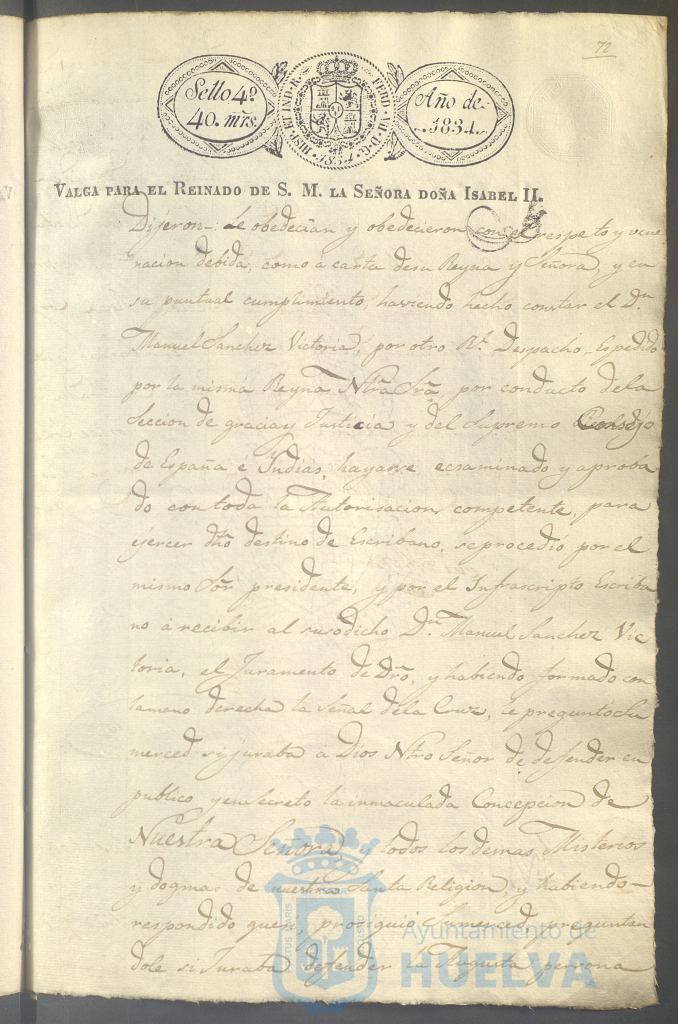 72
Sello 4º
40. mrs.
HISP. ET IND. R. FERD. VII. D. G.
1834
Año de
1834.
VALGA PARA EL REINADO DE S. M. LA SEÑORA DOÑA ISABEL II.
Dijeron- Le obedecian y obedecieron con el respeto y vene
racion debida, como a carta desu Reyna y Señora, y en
su puntual cumplimiento, haviendo hecho constar el Dn
Manuel Sanchez Victoria, por otro Rl. Despacho, Espedido
por la misma Reyna Ntrâ Srâ, por conducto dela
Seccion de gracia y Justicia y del Supremo Consejo
de España é Indias hayarse ecsaminado y aproba
do con toda la Autorisacion competente, para
ejercer dhô destino de Escribano, se procedió por el
mismo Sôr presidente, y por el Infrascripto Escriba
no á recibir al susodicho Dn. Manuel Sanchez Vic
toria, el Juramento de Drô, y habiendo formado con
lamano derecha la Señal dela Cruz, le pregunto Su
merced si juraba á Dios Ntrô Señor de defender en
publico, y en secreto la inmaculada Concepcion de
Nuestra Señora, y todos los demas Misterios
y dogmas de nuestra Santa Religion, y habiendo-
respondido que sí, prosiguió Sumerced, preguntan
dole si Juraba defender la Augusta persona
Ayuntamiento de
HUELVA